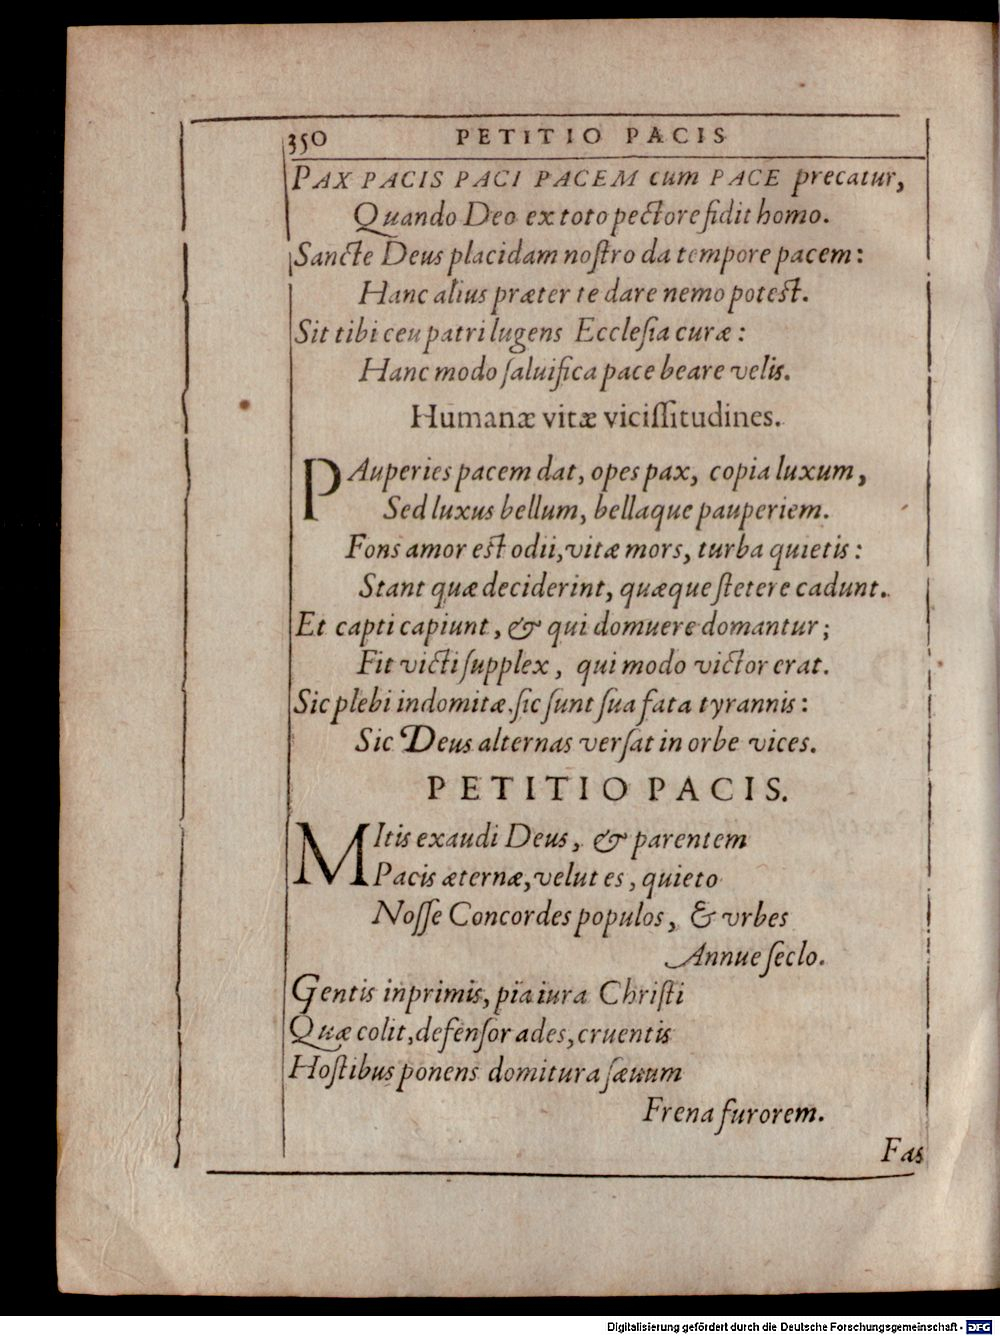 350 PETITIO PACIS
PAX PACIS PACI PACEM cum PACE precatur,
Quando Deo ex toto pectore fidit homo.
Sancte Deus placidam noſtro da tempore pacem:
Hanc alius præter te dare nemo potest.
Sit tibi ceu patri lugens Eccleſia curæ:
Hanc modo ſaluifica pace beare velis.
Humanæ vitæ viciſſitudines.
PAuperies pacem dat, opes pax, copia luxum,
Sed luxus bellum, bellaque pauperiem.
Fons amor est odii, vitæ mors, turba quietis:
Stant quæ deciderint, quæque ſtetere cadunt.
Et capti capiunt, & qui domuere domantur;
Fit victi ſupplex, qui modo victor erat.
Sic plebi indomitæ, ſic ſunt ſua fata tyrannis:
Sic Deus alternas verſat in orbe vices.
PETITIO PACIS.
MItis exaudi Deus, & parentem
Pacis æternæ, velut es, quieto
Noſſe Concordes populos, & vrbes
Annue ſeclo.
Gentis inprimis, pia iura Chriſti
Quæ colit, defenſor ades, cruentis
Hoſtibus ponens domitura ſæuum
Frena furorem.
Fas
Digitalisierung gefördert durch die Deutsche Forschungsgemeinschaft - DFG